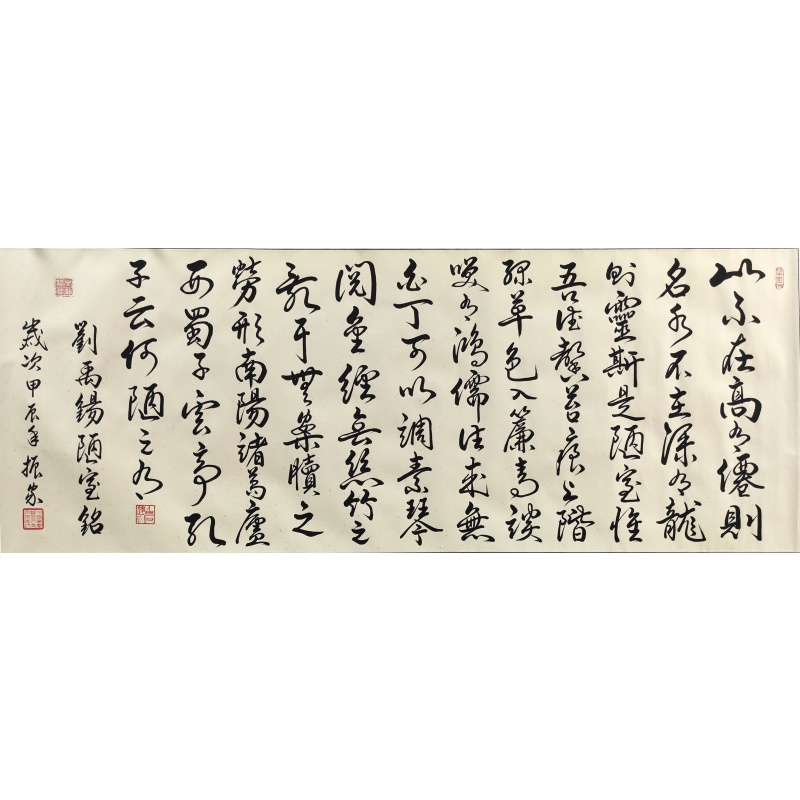 山不在高有僊則
名水不在深有龍
則靈斯是陋室惟
吾德馨苔痕上階
綠草色入簾青談
咲有鴻儒往來無
白丁可以調素琴
閱金經無絲竹之
亂耳無案牘之
勞形南陽諸葛廬
西蜀子雲亭孔
子云何陋之有
劉禹錫陋室銘
歲次甲辰年振家